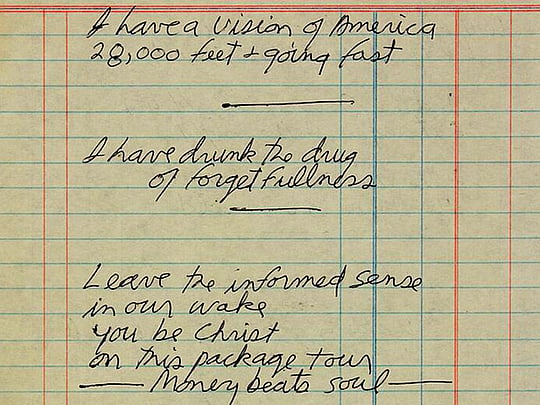 I have a vision of America
28,000 feet & going fast
I have drunk the drug
of forgetfullness
Leave the informed sense
in our wake
you be Christ
on this package tour
— Money beats soul —